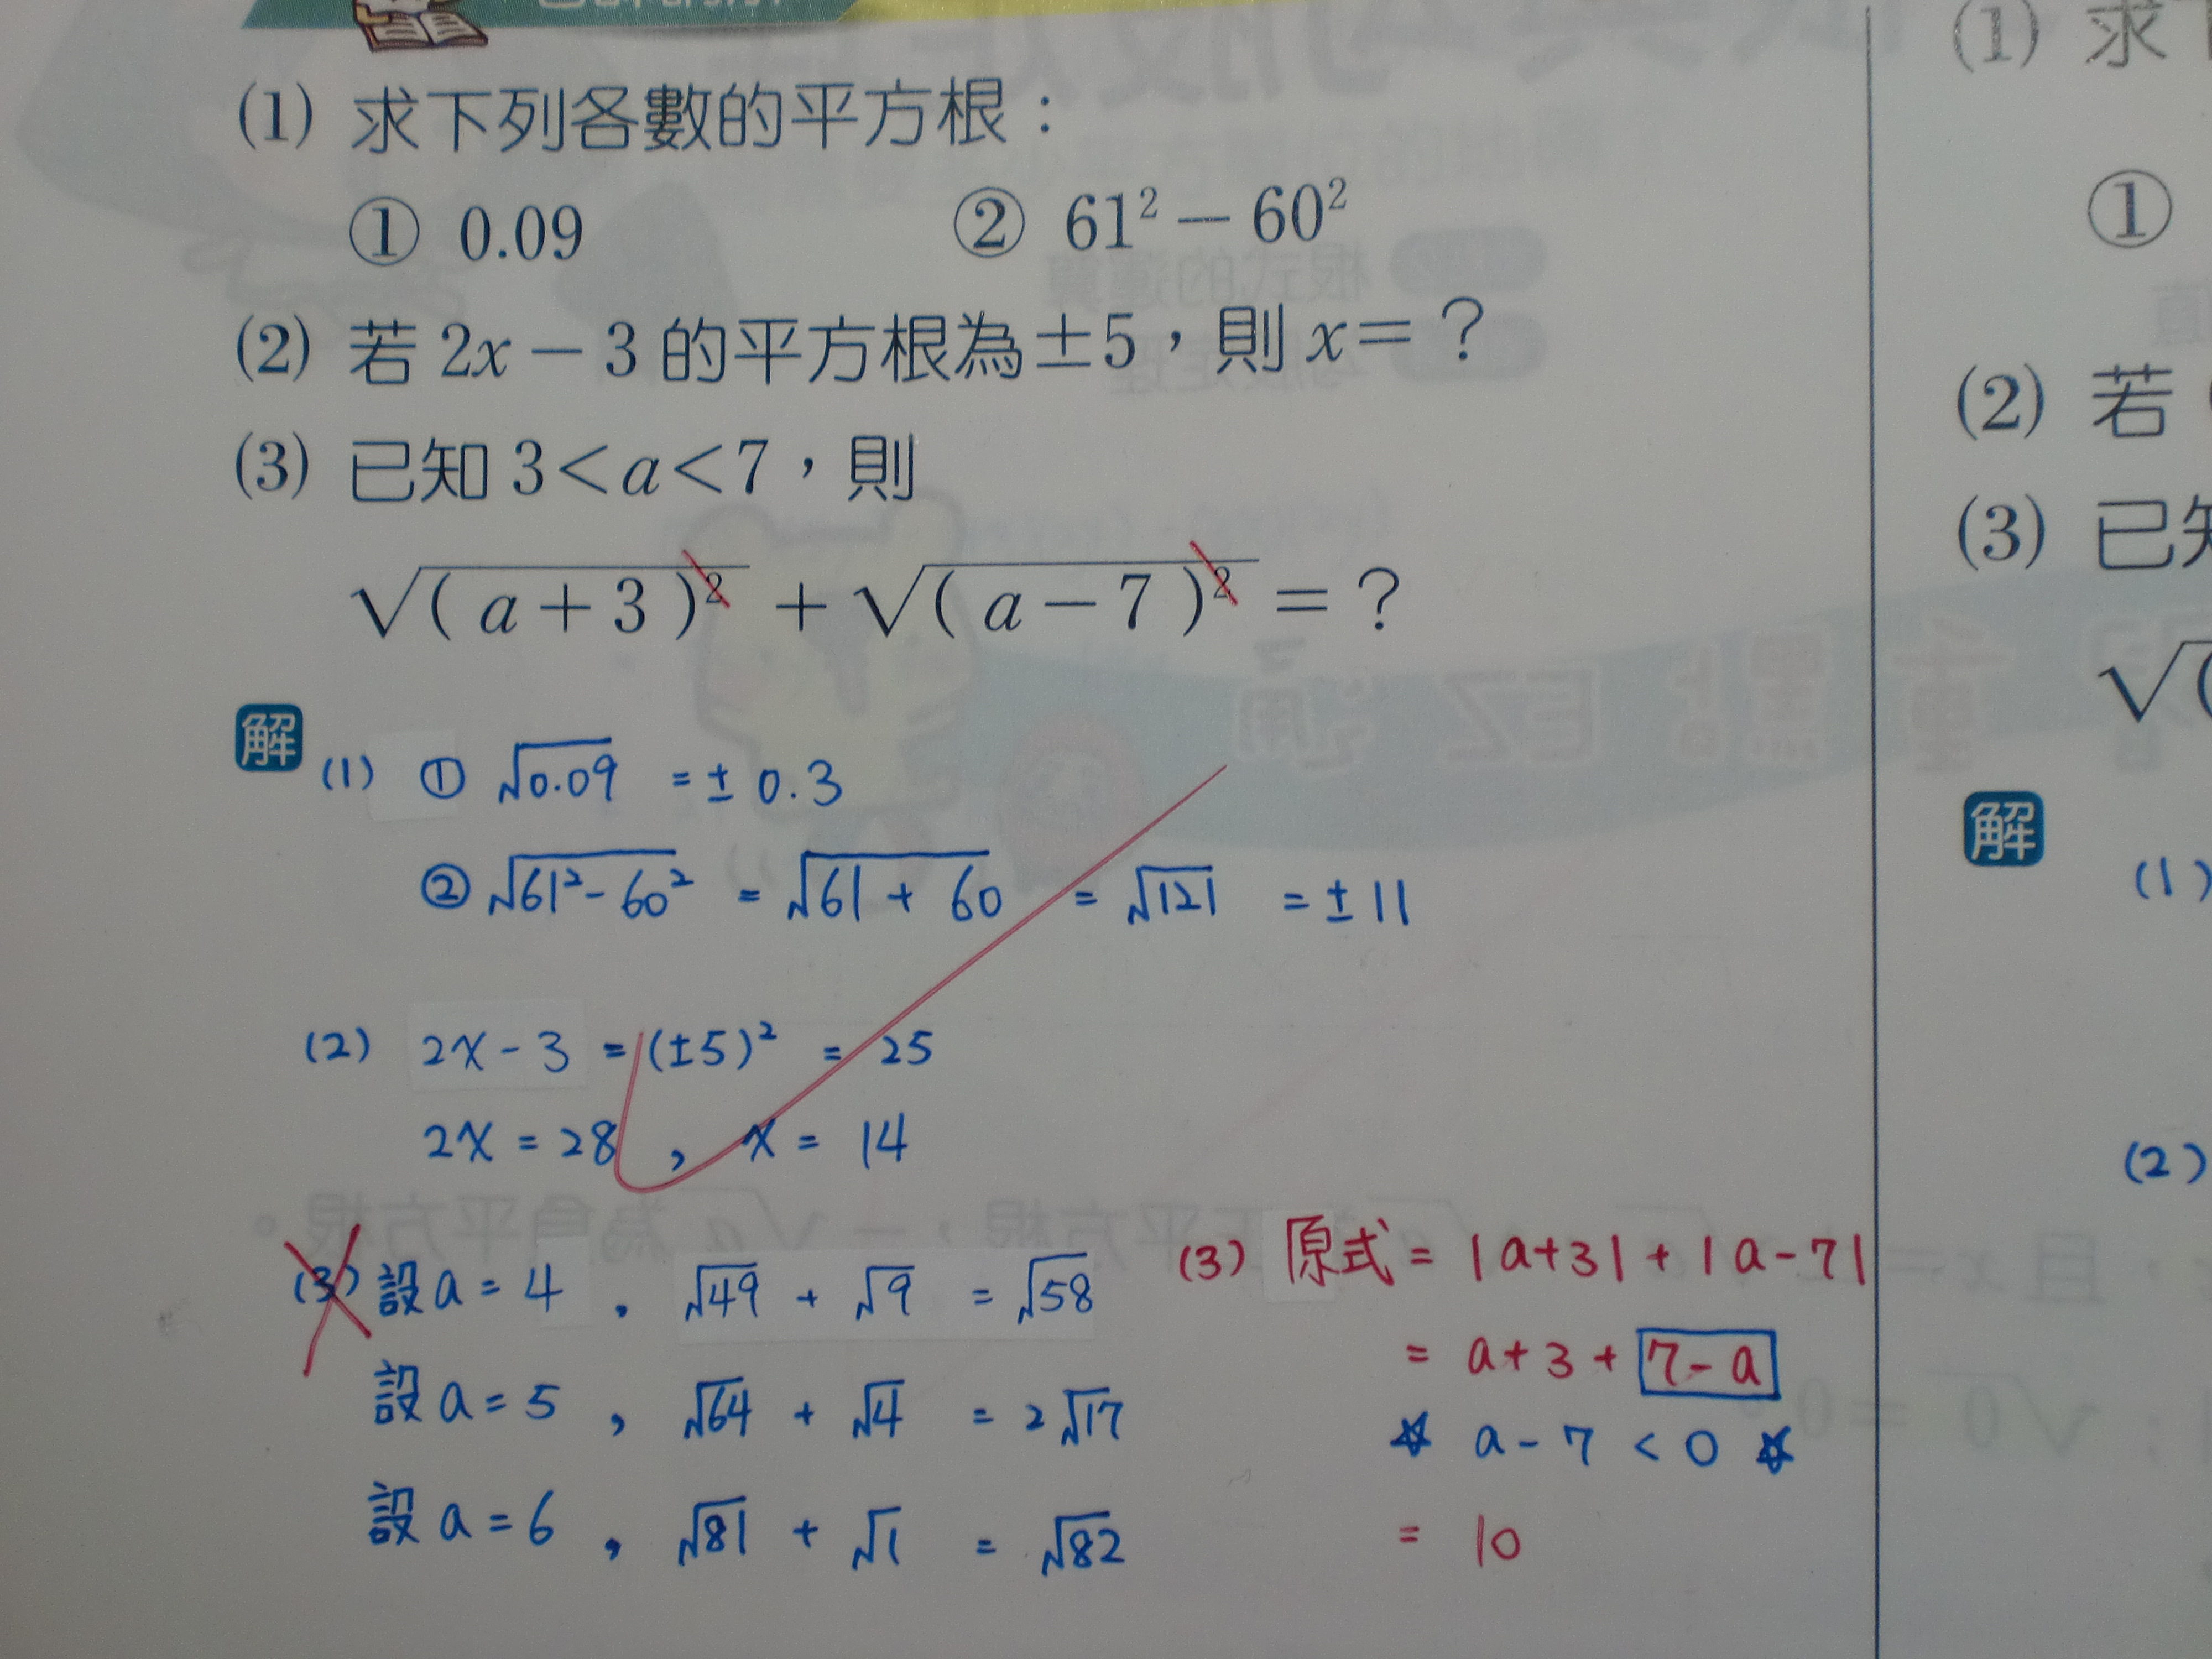 (1) 求下列各數的平方根：
① 0.09 ② 61² − 60²
(2) 若 2x − 3 的平方根為±5，則 x = ？
(3) 已知 3 < a < 7，則
√(a + 3)² + √(a − 7)² = ？
解
(1) ① √0.09 = ± 0.3
② √61² - 60² = √61 + 60 = √121 = ± 11
(2) 2x - 3 = (±5)² = 25
2x = 28 , x = 14
(3) 設 a = 4 , √49 + √9 = √58
設 a = 5 , √64 + √4 = 2√17
設 a = 6 , √81 + √1 = √82
(3) 原式 = |a+3| + |a-7|
= a + 3 + 7 - a
☆ a - 7 < 0 ☆
= 10
(1) 求
①
(2) 若
(3) 已知
√(
解
(1)
(2)